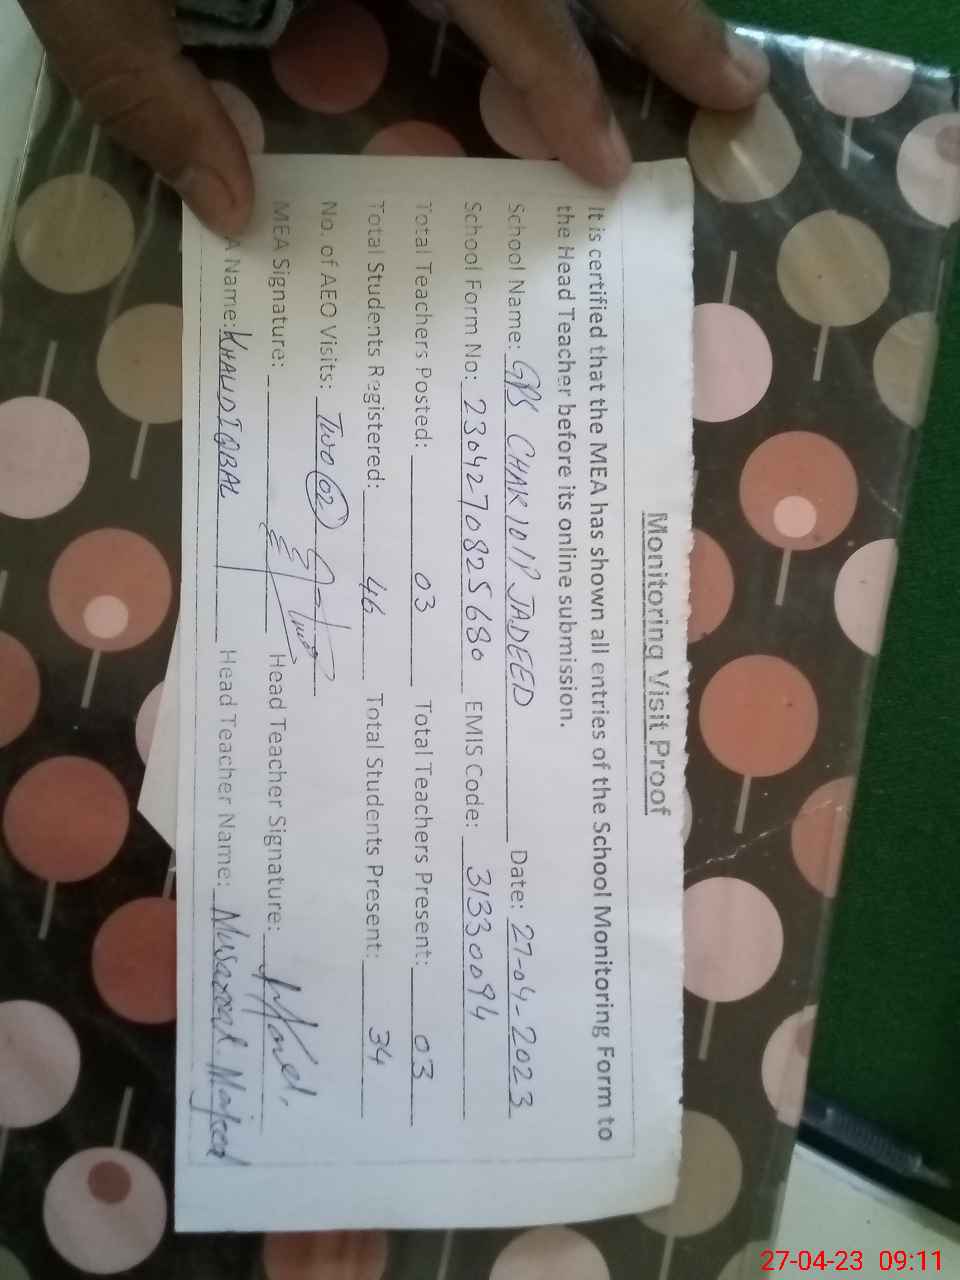 Monitoring Visit Proof
It is certified that the MEA has shown all entries of the School Monitoring Form to
the Head Teacher before its online submission.
School Name: GPS CHAK 10/P JADEED Date: 27-04-2023
School Form No: 2304270825680 EMIS Code: 31330094
Total Teachers Posted: 03 Total Teachers Present: 03
Total Students Registered: 46 Total Students Present: 34
No. of AEO Visits: Two (02)
MEA Signature: Head Teacher Signature:
A Name: KHALID IQBAL Head Teacher Name: Majeed
27-04-23 09:11